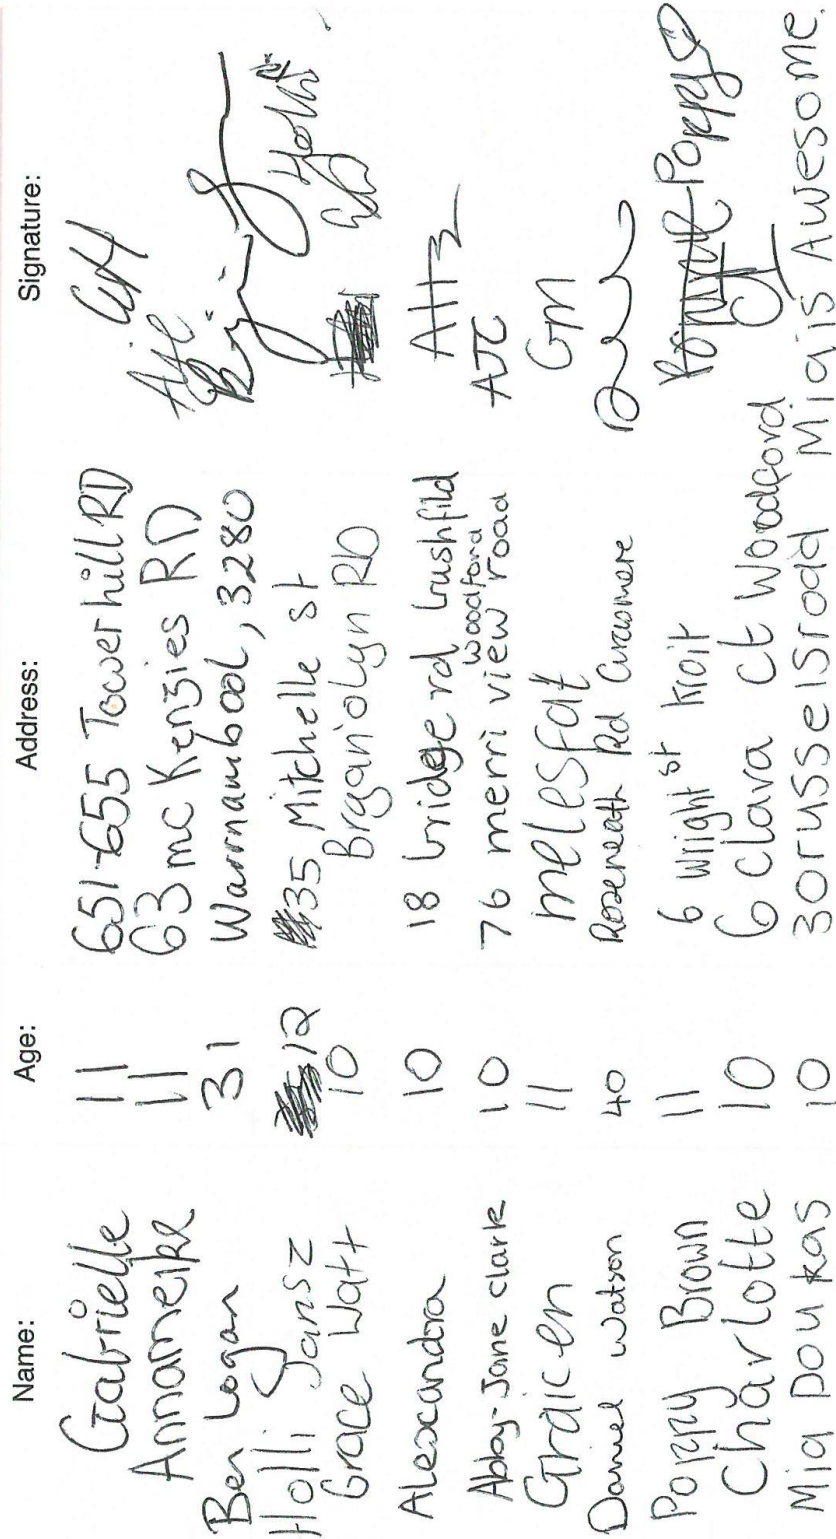 Name: Age: Address: Signature:
Gabrielle 11 651-655 Towerhill RD GH
Annameike 11 63 mcKenzies RD
Ben Logan 31 Warrnambool, 3280
Holli Jansz 12 35 Mitchelle st Holli
Grace Watt 10
Alexandra 10 18 bridge rd bushfild AHB
Abby-Jane clark 10 76 merri view road woodford AJC
Graicen 11 melesfat Gm
Daniel Watson 40 Roseneath Rd
Poppy Brown 11 6 wright st kroit Poppy
Charlotte 10 6 clava ct Woodford
Mia poukas 10 30russelsroad Mia is Awesome.